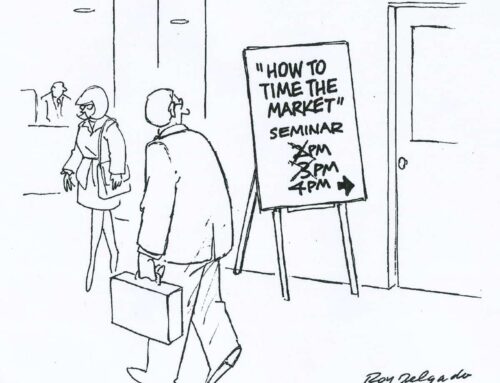 "HOW TO
TIME THE
MARKET"
SEMINAR
2PM
3PM
4PM
Roy Delgado